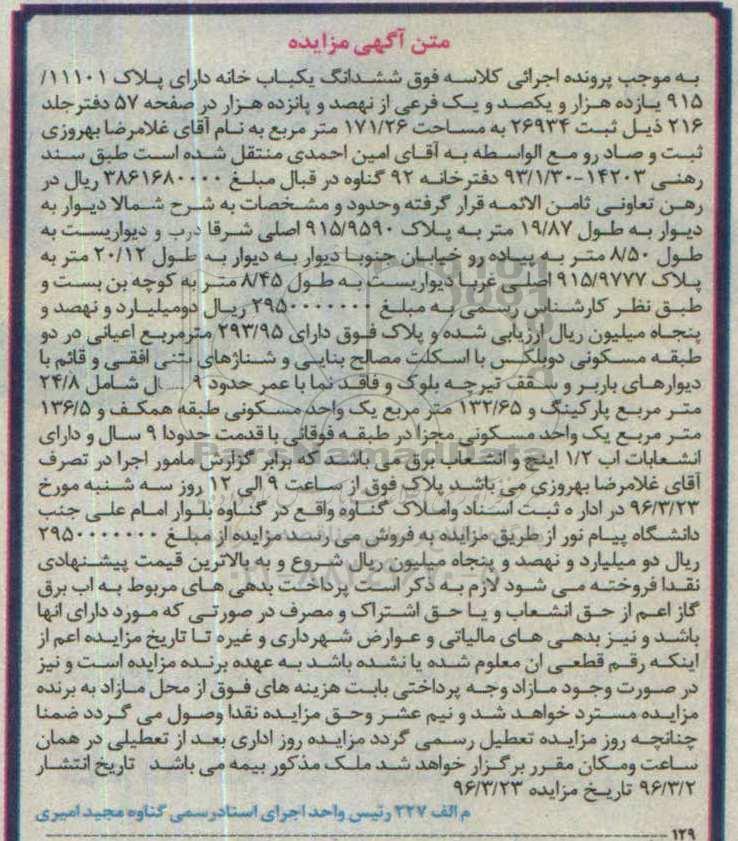 متن آگهی مزایده
به موجب پرونده اجرائی کلاسه فوق ششدانگ یکباب خانه دارای پلاک ۱۱۱۰۱/
۹۱۵ یازده هزار و یکصد و یک فرعی از نهصد و پانزده هزار در صفحه ۵۷ دفتر جلد
۲۱۶ ذیل ثبت ۲۶۹۳۴ به مساحت ۱۷۱/۲۶ متر مربع به نام آقای غلامرضا بهروزی
ثبت و صاد رو مع الواسطه به آقای امین احمدی منتقل شده است طبق سند
رهنی ۱۴۲۰۳-۹۳/۱/۳۰ دفترخانه ۹۲ گناوه در قبال مبلغ ۳۸۶۱۶۸۰۰۰۰ ریال در
رهن تعاونی ثامن الائمه قرار گرفته وحدود و مشخصات به شرح شمالا دیوار به
دیوار به طول ۱۹/۸۷ متر به پلاک ۹۱۵/۹۵۹۰ اصلی شرقا درب و دیواریست به
طول ۸/۵۰ متر به پیاده رو خیابان جنوبا دیوار به دیوار به طول ۲۰/۱۲ متر به
پلاک ۹۱۵/۹۷۷۷ اصلی غربا دیواریست به طول ۸/۴۵ متر به کوچه بن بست و
طبق نظر کارشناس رسمی به مبلغ ۲۹۵۰۰۰۰۰۰۰ ریال دومیلیارد و نهصد و
پنجاه میلیون ریال ارزیابی شده و پلاک فوق دارای ۲۹۳/۹۵ مترمربع اعیانی در دو
طبقه مسکونی دوبلکس با اسکلت مصالح بنایی و شناژهای بتنی افقی و قائم با
دیوارهای باربر و سقف تیرچه بلوک و فاقد نما با عمر حدود ۹ شامل ۲۴/۸
متر مربع پارکینگ و ۱۳۲/۶۵ متر مربع یک واحد مسکونی طبقه همکف و ۱۳۶/۵
متر مربع یک واحد مسکونی مجزا در طبقه فوقانی با قدمت حدودا ۹ سال و دارای
انشعابات اب ۱/۲ اینچ و انشعاب برق می باشد که برابر گزارش مامور اجرا در تصرف
آقای غلامرضا بهروزی می باشد پلاک فوق از ساعت ۹ الی ۱۲ روز سه شنبه مورخ
۹۶/۳/۲۳ در ادار ه ثبت اسناد واملاک گناوه واقع در گناوه بلوار امام علی جنب
دانشگاه پیام نور از طریق مزایده به فروش می رسد مزایده از مبلغ ۲۹۵۰۰۰۰۰۰۰
ریال دو میلیارد و نهصد و پنجاه میلیون ریال شروع و به بالاترین قیمت پیشنهادی
نقدا فروخته می شود لازم به ذکر است پرداخت بدهی های مربوط به اب برق
گاز اعم از حق انشعاب و یا حق اشتراک و مصرف در صورتی که مورد دارای انها
باشد و نیز بدهی های مالیاتی و عوارض شهرداری و غیره تا تاریخ مزایده اعم از
اینکه رقم قطعی ان معلوم شده یا نشده باشد به عهده برنده مزایده است و نیز
در صورت وجود مازاد وجه پرداختی بابت هزینه های فوق از محل مازاد به برنده
مزایده مسترد خواهد شد و نیم عشر وحق مزایده نقدا وصول می گردد ضمنا
چنانچه روز مزایده تعطیل رسمی گردد مزایده روز اداری بعد از تعطیلی در همان
ساعت ومکان مقرر برگزار خواهد شد ملک مذکور بیمه می باشد تاریخ انتشار
۹۶/۳/۲ تاریخ مزایده ۹۶/۳/۲۳
م الف ۲۲۷ رئیس واحد اجرای اسنادرسمی گناوه مجید امیری
۱۲۹
ParsNamadData